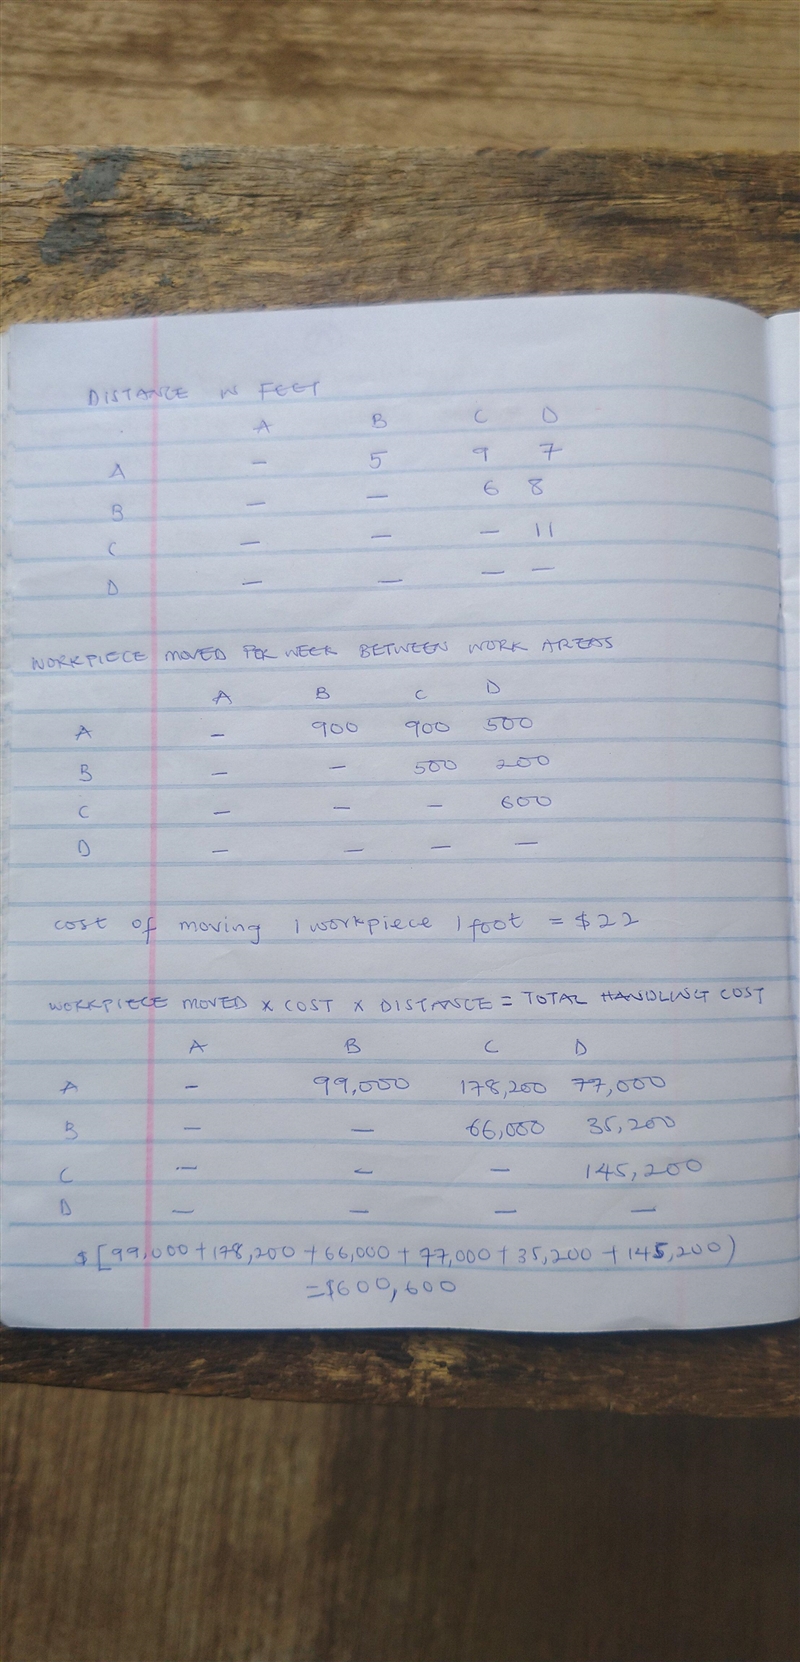 DISTANCE IN FEET
A B C D
A — 5 9 7
B — — 6 8
C — — — 11
D — — — —
WORKPIECE MOVED PER WEEK BETWEEN WORK AREAS
A B C D
A — 900 900 500
B — — 500 200
C — — — 600
D — — — —
cost of moving 1 workpiece 1 foot = $22
WORKPIECE MOVED x COST x DISTANCE = TOTAL HANDLING COST
A B C D
A — 99,000 178,200 77,000
B — — 66,000 35,200
C — — — 145,200
D — — — —
$[99,000+178,200+66,000+77,000+35,200+145,200)
=$600,600